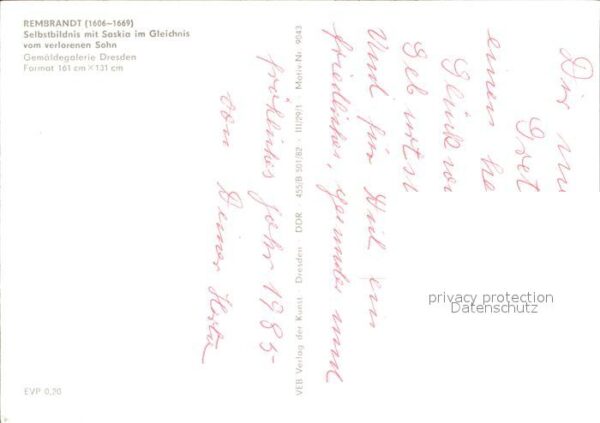 REMBRANDT (1606–1669)
Selbstbildnis mit Saskia im Gleichnis
vom verlorenen Sohn
Gemäldegalerie Dresden
Format 161 cm × 131 cm
EVP 0,20
VEB Verlag der Kunst · Dresden · DDR · 455/B 501/82 · III/29/1 Motiv-Nr. 9043
einen
Und für Dich ein
friedliches, gesundes und
fröhliches Jahr 1985
von Deiner Herta
privacy protection
Datenschutz